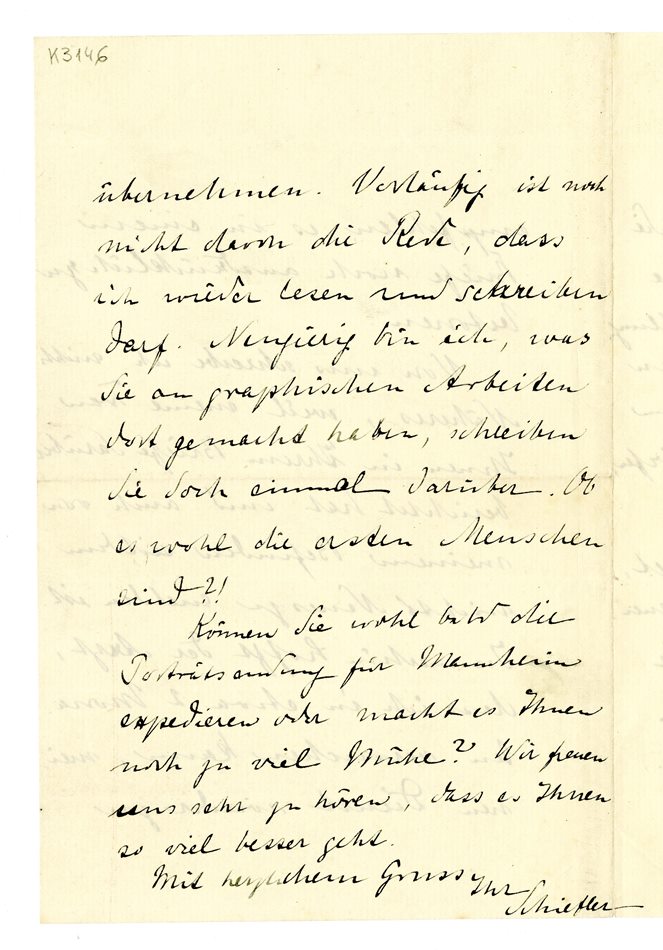 K3146
übernehmen. Vorläufig ist noch
nicht davon die Rede, dass
ich wieder lesen und schreiben
darf. Neugierig bin ich, was
Sie an graphischen Arbeiten
dort gemacht haben, schreiben
Sie doch einmal darüber. Ob
es wohl die ersten Menschen
sind?!
Können Sie wohl bald die
Porträtsendung für Mannheim
expedieren oder macht es Ihnen
noch zu viel Mühe? Wir freuen
uns sehr zu hören, dass es Ihnen
so viel besser geht.
Mit herzlichem Gruss Ihr
Schiefler